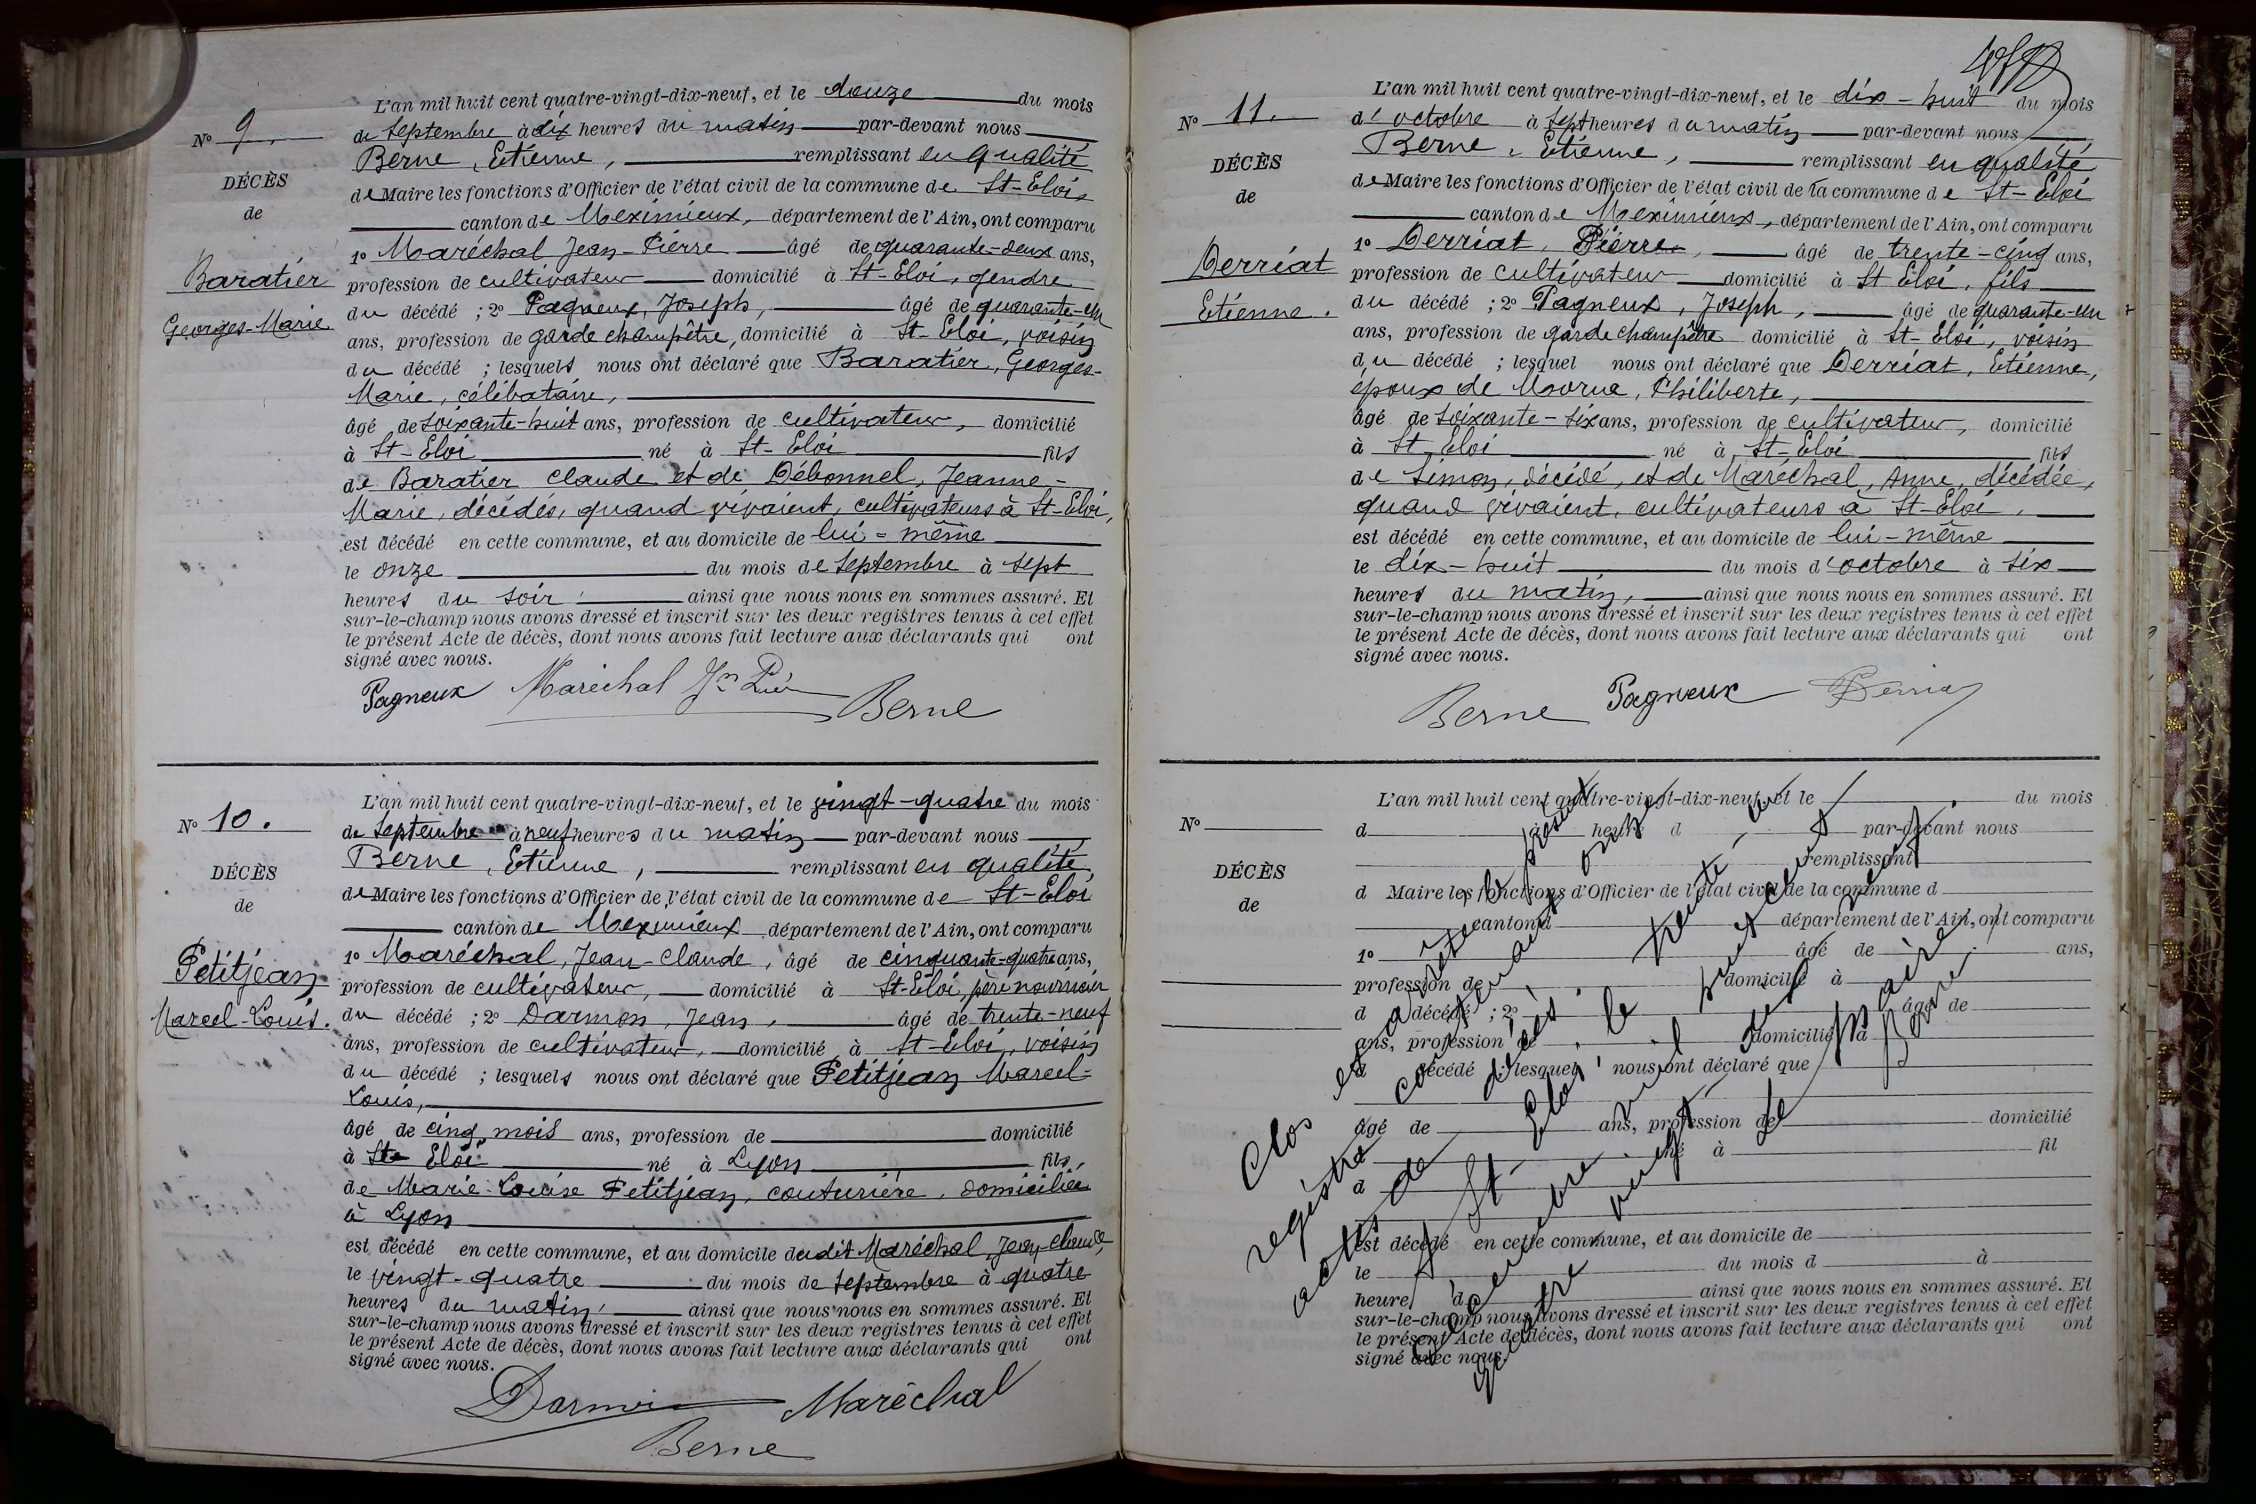 L'an mil huit cent quatre-vingt-dix-neuf, et le douze du mois
No 9.
de Septembre à dix heures du matin par-devant nous
Berne, Etienne, remplissant en qualité
DÉCÈS
de Maire les fonctions d'Officier de l'état civil de la commune de St-Eloi,
de
canton de Meximieux, département de l'Ain, ont comparu
1o Maréchal Jean-Pierre âgé de quarante-deux ans,
Baratier
profession de cultivateur domicilié à St-Eloi, gendre
du décédé ; 2o Pagneux, Joseph, âgé de quarante-un
Georges-Marie.
ans, profession de garde champêtre, domicilié à St-Eloi, voisin
du décédé ; lesquels nous ont déclaré que Baratier, Georges-
Marie, célibataire,
âgé de soixante-huit ans, profession de cultivateur, domicilié
à St-Eloi né à St-Eloi fils
de Baratier Claude et de Débonnel, Jeanne-
Marie, décédés, quand vivaient, cultivateurs à St-Eloi,
est décédé en cette commune, et au domicile de lui-même
le onze du mois de Septembre à sept
heures du soir ainsi que nous nous en sommes assuré. Et
sur-le-champ nous avons dressé et inscrit sur les deux registres tenus à cet effet
le présent Acte de décès, dont nous avons fait lecture aux déclarants qui ont
signé avec nous.
Pagneux Maréchal Jn Pierre Berne
L'an mil huit cent quatre-vingt-dix-neuf, et le vingt-quatre du mois
No 10.
de Septembre à neuf heures du matin par-devant nous
Berne, Etienne, remplissant en qualité
DÉCÈS
de Maire les fonctions d'Officier de l'état civil de la commune de St-Eloi
de
canton de Meximieux département de l'Ain, ont comparu
1o Maréchal, Jean-Claude, âgé de cinquante-quatre ans,
Petitjean
profession de cultivateur, domicilié à St-Eloi, père nourricier
Marcel-Louis.
du décédé ; 2o Darmon, Jean, âgé de trente-neuf
ans, profession de cultivateur, domicilié à St-Eloi, voisin
du décédé ; lesquels nous ont déclaré que Petitjean Marcel-
Louis,
âgé de cinq mois ans, profession de domicilié
à St Eloi né à Lyon fils
de Marie-Louise Petitjean, couturière, domiciliée
à Lyon
est décédé en cette commune, et au domicile dudit Maréchal, Jean-Claude,
le vingt-quatre du mois de Septembre à quatre
heures du matin, ainsi que nous nous en sommes assuré. Et
sur-le-champ nous avons dressé et inscrit sur les deux registres tenus à cet effet
le présent Acte de décès, dont nous avons fait lecture aux déclarants qui ont
signé avec nous.
Darmon Maréchal
Berne
L'an mil huit cent quatre-vingt-dix-neuf, et le dix-huit du mois
No 11.
d'octobre à sept heures du matin par-devant nous
Berne, Etienne, remplissant en qualité
DÉCÈS
de Maire les fonctions d'Officier de l'état civil de la commune de St-Eloi
de
canton de Meximieux, département de l'Ain, ont comparu
1o Derriat, Pierre, âgé de trente-cinq ans,
Derriat
profession de cultivateur domicilié à St Eloi, fils
Etienne.
du décédé ; 2o Pagneux, Joseph, âgé de quarante-un
ans, profession de garde champêtre domicilié à St-Eloi, voisin
du décédé ; lesquel nous ont déclaré que Derriat, Etienne,
époux de Morne, Philiberte,
âgé de soixante-six ans, profession de cultivateur, domicilié
à St Eloi né à St-Eloi fils
de Simon, décédé, et de Maréchal, Anne, décédée,
quand vivaient, cultivateurs à St-Eloi,
est décédé en cette commune, et au domicile de lui-même
le dix-huit du mois d'octobre à six
heures du matin, ainsi que nous nous en sommes assuré. Et
sur-le-champ nous avons dressé et inscrit sur les deux registres tenus à cet effet
le présent Acte de décès, dont nous avons fait lecture aux déclarants qui ont
signé avec nous.
Berne Pagneux Derriat
L'an mil huit cent quatre-vingt-dix-neuf, et le du mois
No
d à heure d par-devant nous
remplissant
DÉCÈS
d Maire les fonctions d'Officier de l'état civil de la commune d
de
canton d département de l'Ain, ont comparu
1o âgé de ans,
profession de domicilié à
d décédé ; 2o âgé de
ans, profession de domicilié à
d décédé ; lesquel nous ont déclaré que
âgé de ans, profession de domicilié
à né à fil
d
est décédé en cette commune, et au domicile de
le du mois d à
heure d ainsi que nous nous en sommes assuré. Et
sur-le-champ nous avons dressé et inscrit sur les deux registres tenus à cet effet
le présent Acte de décès, dont nous avons fait lecture aux déclarants qui ont
signé avec nous.
Clos et arrêté le présent
registre contenant onze
actes de décès.
A St-Eloi, le trente-un
Décembre mil huit cent
quatre vingt dix neuf.
Le Maire
Berne